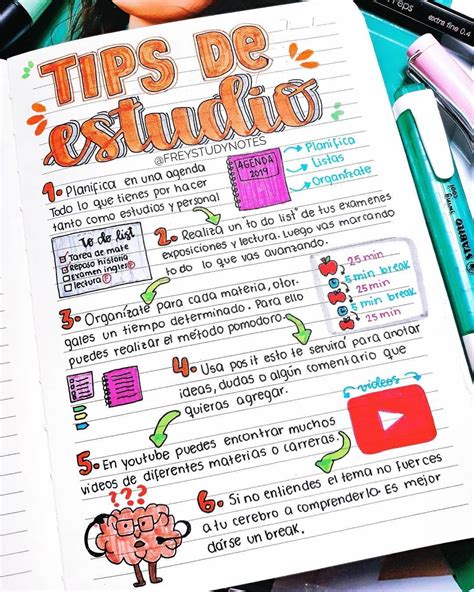 TIPS DE
estudio
@FREYSTUDYNOTES
1. Planifica en una agenda
Todo lo que tienes por hacer
tanto como estudios y personal
AGENDA
2019
Planifica
Listas
Organízate
to do list
Tarea de mate
Repaso historia
Examen inglés
lectura
2. Realiza un to do list" de tus exámenes
exposiciones y lectura. Luego vas marcando
to do lo que vas avanzando.
3. Organízate para cada materia, otor-
gales un tiempo determinado. Para ello
puedes realizar el método pomodoro.
25 min
5 min break
25 min
5 min break
25 min
4. Usa posit esto te servirá para anotar
ideas, dudas o algún comentario que
quieras agregar.
videos
5. En youtube puedes encontrar muchos
videos de diferentes materias o carreras.
???
6. Si no entiendes el tema no fuerces
a tu cerebro a comprenderlo. Es mejor
darse un break.
extra fine 0.4
STABILO